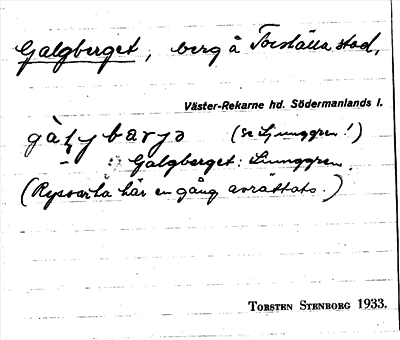 Galgberget, berg å Torshälla stad,
Väster-Rekarne hd. Södermanlands l.
(se Ljunggren!)
Galgberget: Ljunggren.
(Rysscha här en gång avrättats.)
TORSTEN STENBORG 1933.